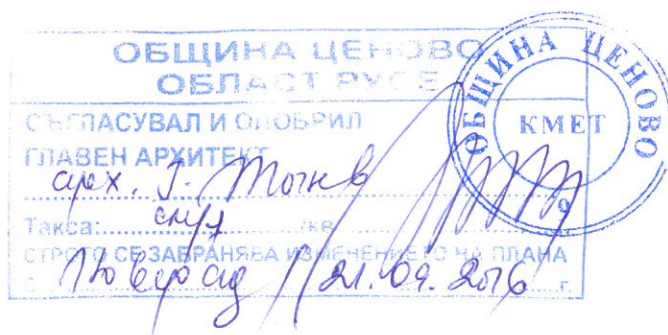 ОБЩИНА ЦЕНОВО
ОБЛАСТ РУСЕ
СЪГЛАСУВАЛ И ОДОБРИЛ
ГЛАВЕН АРХИТЕКТ
арх.
Такса: /кв.
СТРОГО СЕ ЗАБРАНЯВА ИЗМЕНЕНИЕТО НА ПЛАНА
21.09.2016 г.
ОБЩИНА ЦЕНОВО
КМЕТ